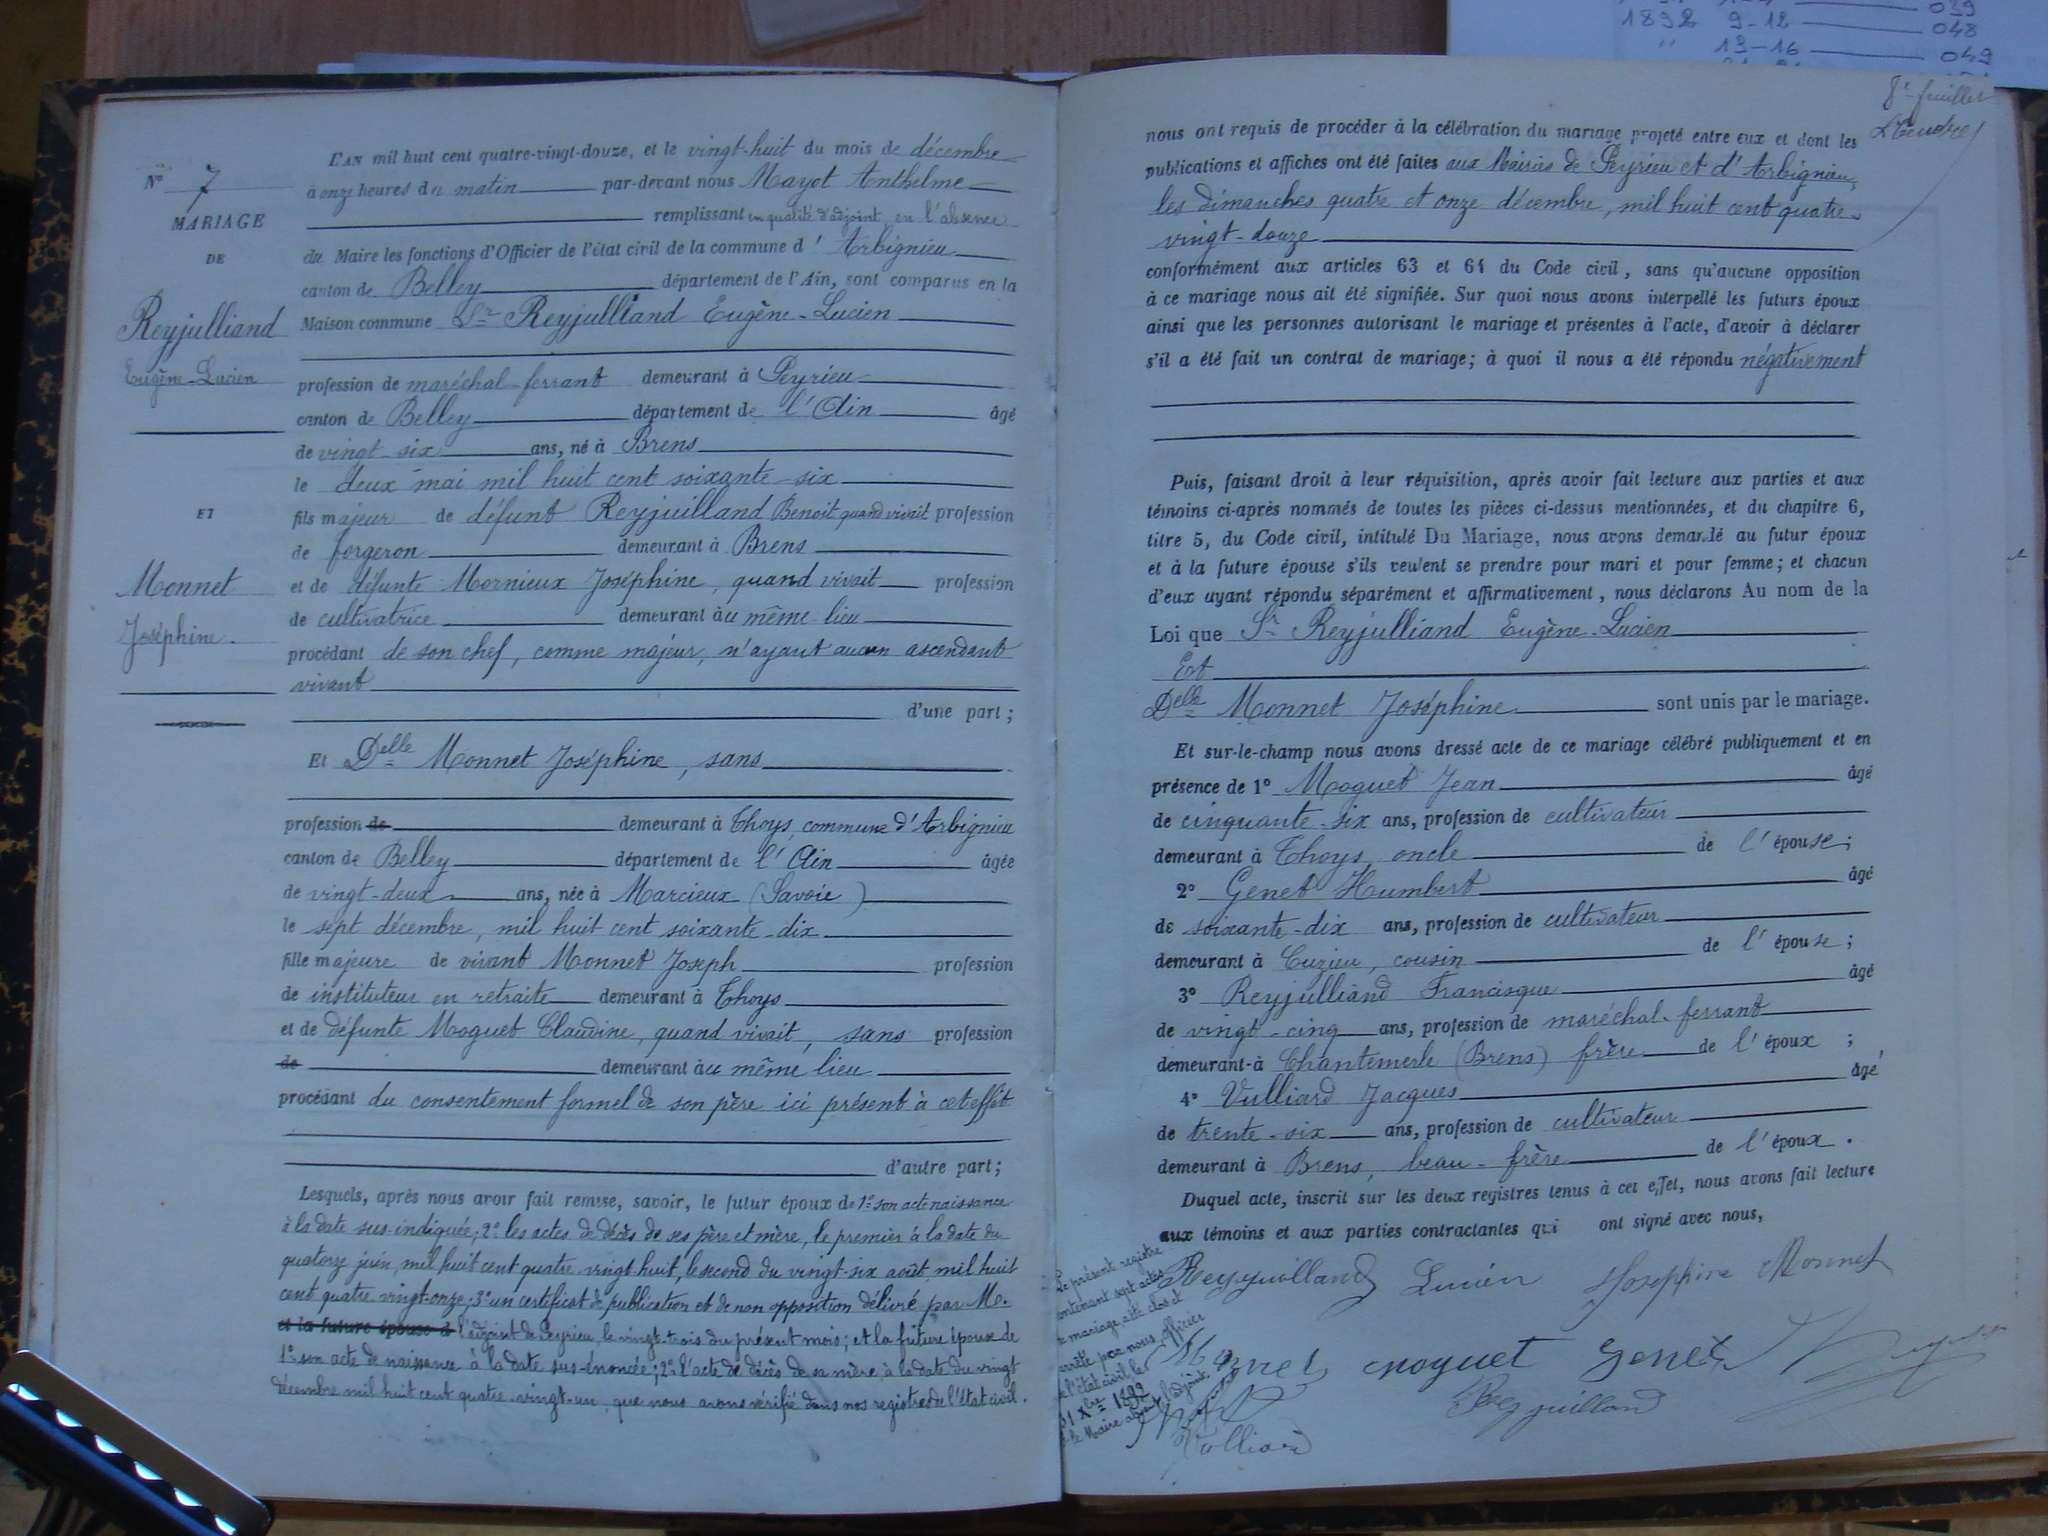 1892 9-12 — 048
" 13-16 — 049
8e feuillet
No 7
MARIAGE
DE
Reyjulliand
Eugène-Lucien
ET
Monnet
Joséphine.
L'AN mil huit cent quatre-vingt-douze, et le vingt-huit du mois de décembre
à onze heures du matin par-devant nous Mayot Anthelme
remplissant en qualité d'adjoint, en l'absence
du Maire les fonctions d'Officier de l'état civil de la commune d' Arbignieu
canton de Belley département de l'Ain, sont comparus en la
Maison commune Sr Reyjulliand Eugène-Lucien
profession de maréchal-ferrant demeurant à Peyrieu
canton de Belley département de l'Ain âgé
de vingt-six ans, né à Brens
le deux mai mil huit cent soixante-six
fils majeur de défunt Reyjuilland Benoit, quand vivait profession
de forgeron demeurant à Brens
et de défunte Mornieux Joséphine, quand vivait profession
de cultivatrice demeurant àu même lieu
procédant de son chef, comme majeur, n'ayant aucun ascendant
vivant
d'une part;
Et Delle Monnet Joséphine, sans
profession de demeurant à Thoys, commune d'Arbignieu
canton de Belley département de l'Ain âgée
de vingt-deux ans, née à Marcieux (Savoie)
le sept décembre, mil huit cent soixante-dix
fille majeure de vivant Monnet Joseph profession
de instituteur en retraite demeurant à Thoys
et de défunte Moguet Claudine, quand vivait, sans profession
de demeurant àu même lieu
procédant du consentement formel de son père ici présent à cet effet
d'autre part;
Lesquels, après nous avoir fait remise, savoir, le futur époux de 1o son acte naissance
à la date sus-indiquée; 2o les actes de décès de ses père et mère, le premier à la date du
quatorze juin, mil huit cent quatre-vingt-huit, le second du vingt-six août, mil huit
cent quatre-vingt-onze; 3o un certificat de publication et de non opposition délivré par M.
et la future épouse d l'adjoint de Peyrieu, le vingt-trois du présent mois; et la future épouse de
1o son acte de naissance à la date sus-énoncée; 2o l'acte de décès de sa mère, à la date du vingt
décembre mil huit cent quatre-vingt-un, que nous avons vérifié dans nos registres de l'état civil.
nous ont requis de procéder à la célébration du mariage projeté entre eux et dont les
publications et affiches ont été faites aux Mairies de Peyrieu et d'Arbignieu,
les dimanches quatre et onze décembre, mil huit cent quatre-
vingt-douze
conformément aux articles 63 et 64 du Code civil, sans qu'aucune opposition
à ce mariage nous ait été signifiée. Sur quoi nous avons interpellé les futurs époux
ainsi que les personnes autorisant le mariage et présentes à l'acte, d'avoir à déclarer
s'il a été fait un contrat de mariage; à quoi il nous a été répondu négativement
Puis, faisant droit à leur réquisition, après avoir fait lecture aux parties et aux
témoins ci-après nommés de toutes les pièces ci-dessus mentionnées, et du chapitre 6,
titre 5, du Code civil, intitulé Du Mariage, nous avons demandé au futur époux
et à la future épouse s'ils veulent se prendre pour mari et pour femme; et chacun
d'eux ayant répondu séparément et affirmativement, nous déclarons Au nom de la
Loi que Sr Reyjulliand Eugène-Lucien
Et
Delle Monnet Joséphine sont unis par le mariage.
Et sur-le-champ nous avons dressé acte de ce mariage célébré publiquement et en
présence de 1o Moguet Jean âgé
de cinquante-six ans, profession de cultivateur
demeurant à Thoys, oncle de l'épouse;
2o Genet Humbert âgé
de soixante-dix ans, profession de cultivateur
demeurant à Cuzieu, cousin de l'épouse;
3o Reyjulliand Francisque âgé
de vingt-cinq ans, profession de maréchal-ferrant
demeurant à Chantemerle (Brens) frère de l'époux;
4o Vulliard Jacques âgé
de trente-six ans, profession de cultivateur
demeurant à Brens, beau-frère de l'époux.
Duquel acte, inscrit sur les deux registres tenus à cet effet, nous avons fait lecture
aux témoins et aux parties contractantes qui ont signé avec nous,
Reyjuilland Lucien Joséphine Monnet
Monnet moguet Genet
Reyjuilland
Vulliard
Le présent registre
contenant sept actes
de mariage, a été clos et
arrêté par nous, officier
de l'état civil, le
31 Xbre 1892
le Maire absent, l'adjoint.